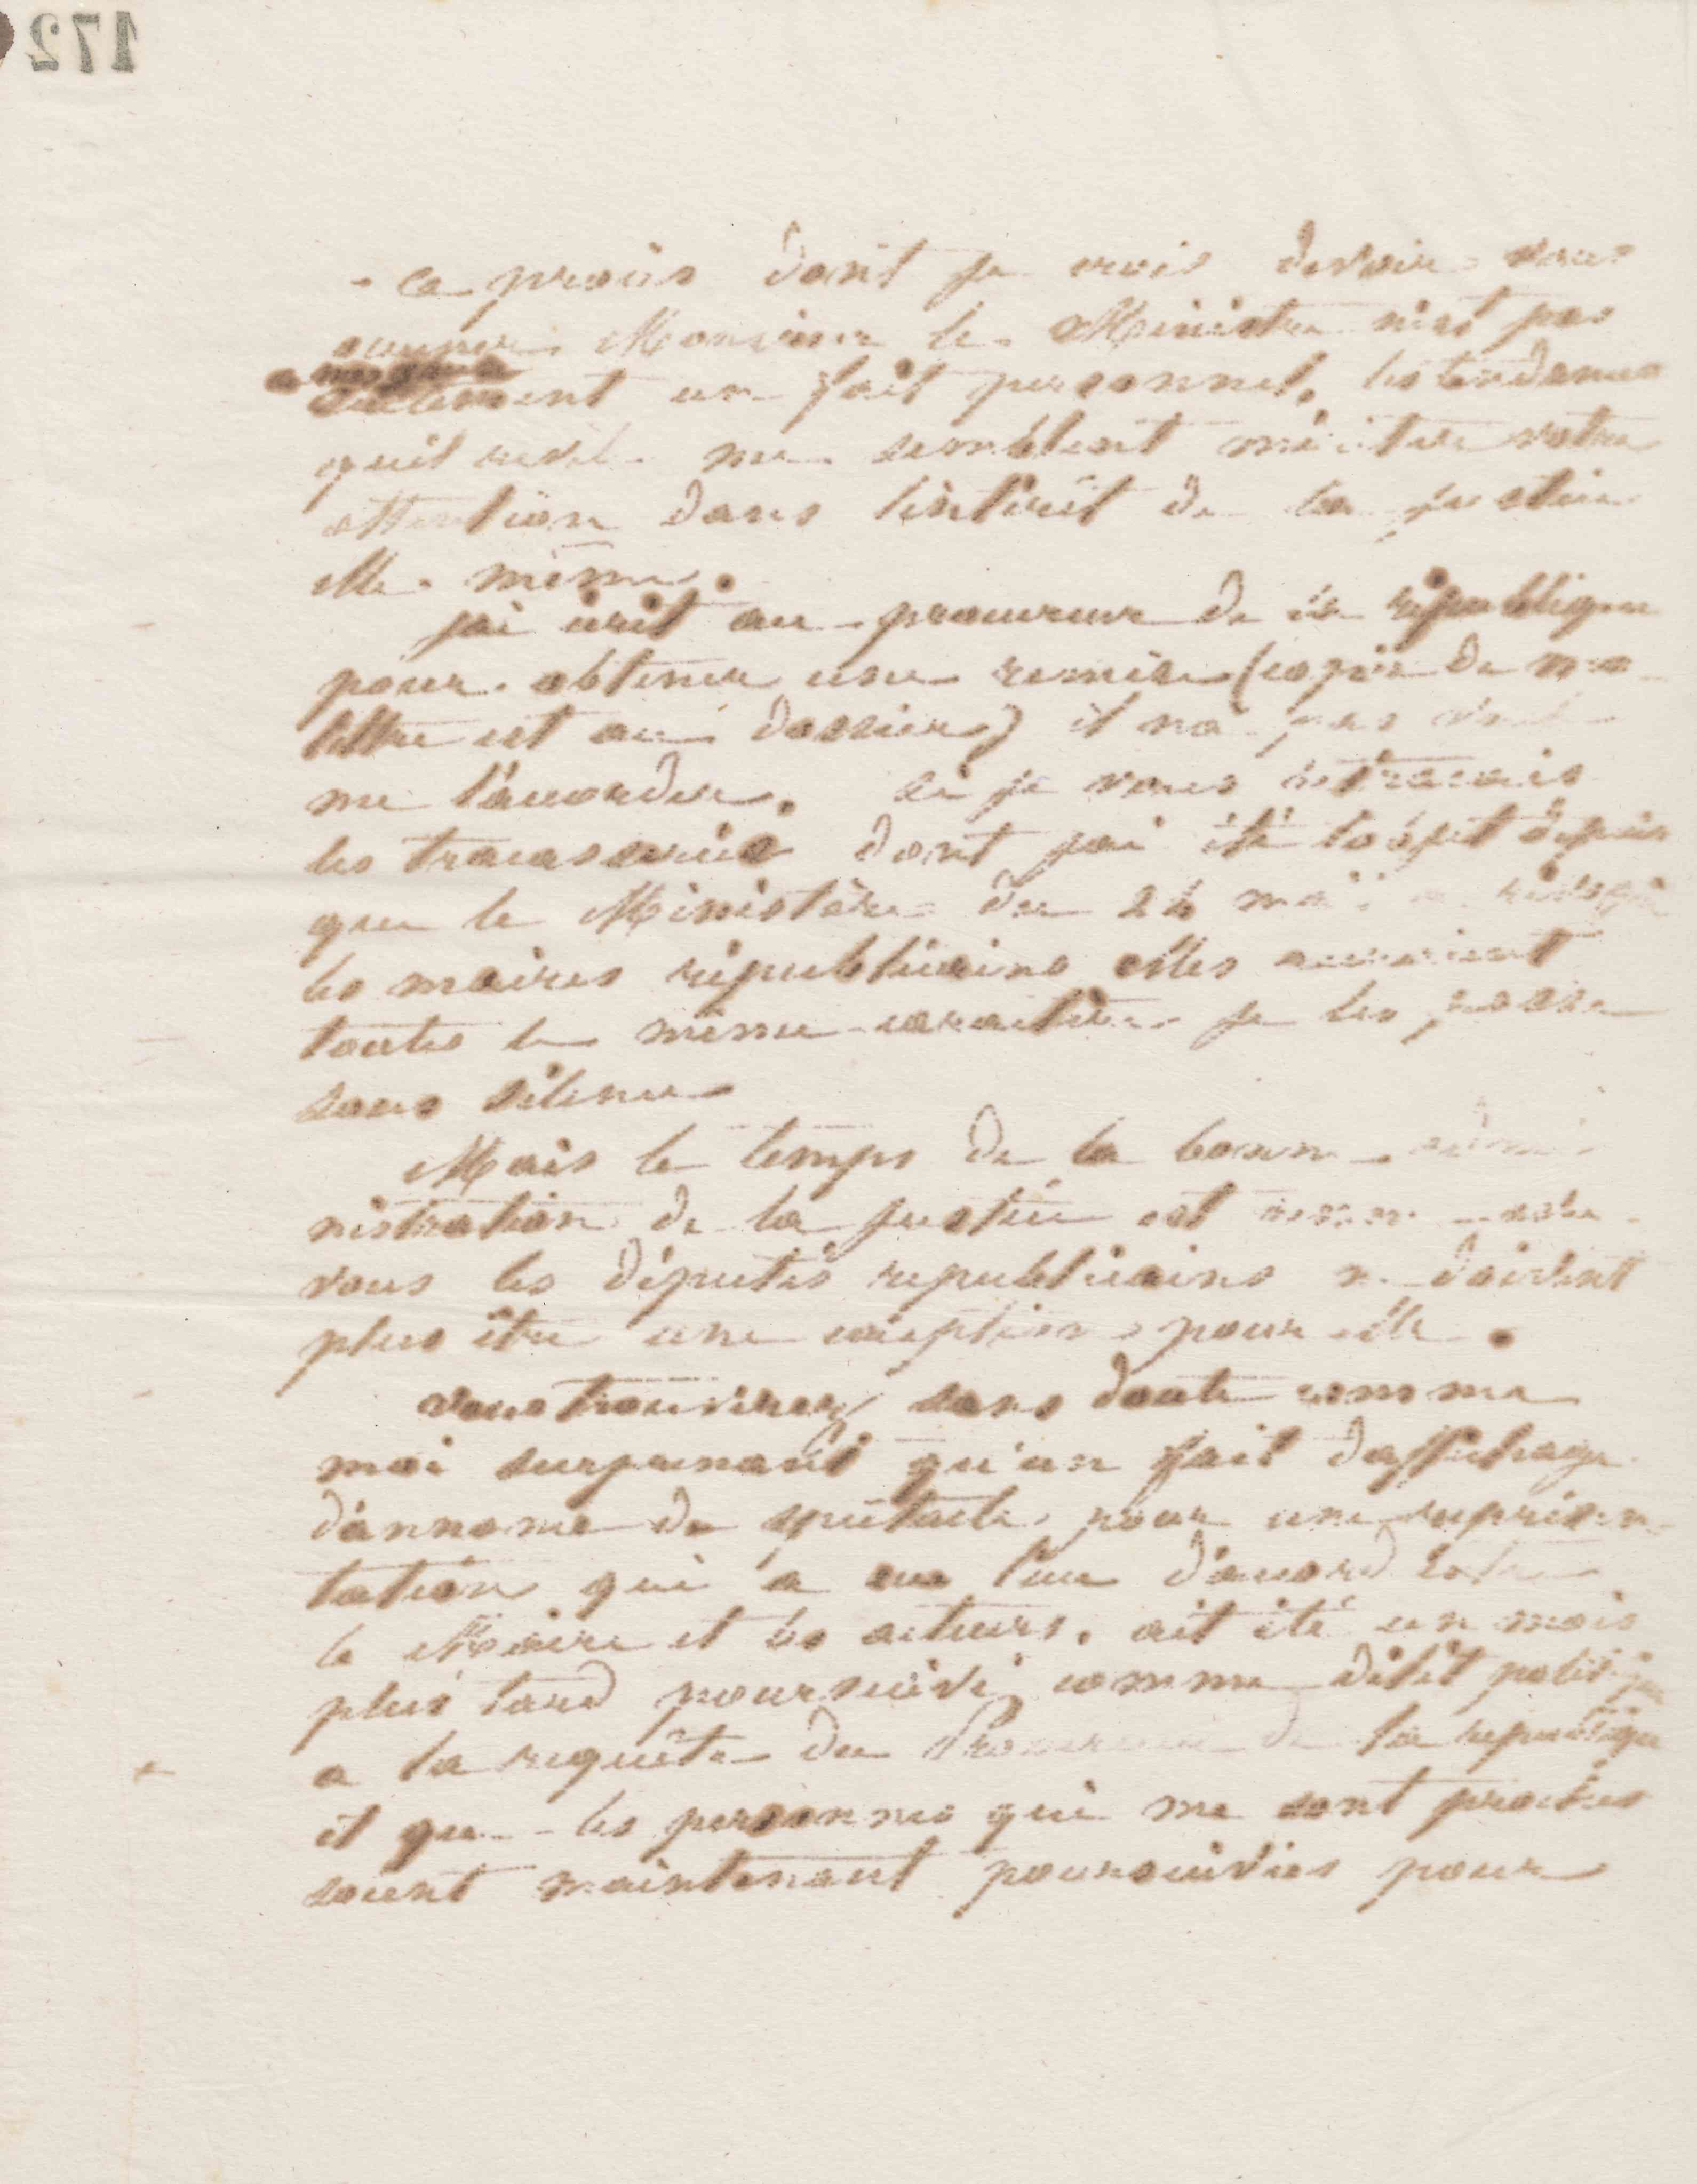 172
- ce procès dont je crois devoir vous
occuper Monsieur le Ministre n'est pas
seulement un fait personnel, les tendances
qu'il révèle me semblent mériter votre
attention dans l'intérêt de la justice
elle même.
j'ai écrit au procureur de la république
pour obtenir une remise (copie de ma
lettre est au dossier) il n'a pas voulu
me l'accorder. si je vous retraçais
les tracasseries dont j'ai été l'objet depuis
que le Ministère du 24 mai a révoqué
les maires républicains elles auraient
toutes le même caractère je les passe
sous silence
Mais le temps de la bonne admi
nistration de la justice est venu avec
vous les députés republicains ne doivent
plus être une exception pour elle.
vous trouverez sans doute comme
moi surprenant qu'un fait d'affichage
d'annonce de spectacle pour une représen
tation qui a eu lieu d'accord entre
le Maire et les acteurs, ait été un mois
plus tard poursuivi comme délit politique
a la requête du Procureur de la republique
et que les personnes qui me sont proches
soient maintenant poursuivies pour